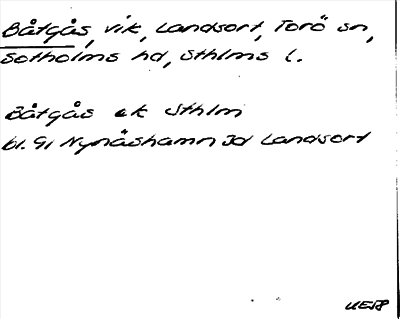 Båtgås, vik, Landsort, Torö sn,
Sotholms hd, Sthlms l.
Båtgås ek Sthlm
bl. 9i Nynäshamn Jd Landsort